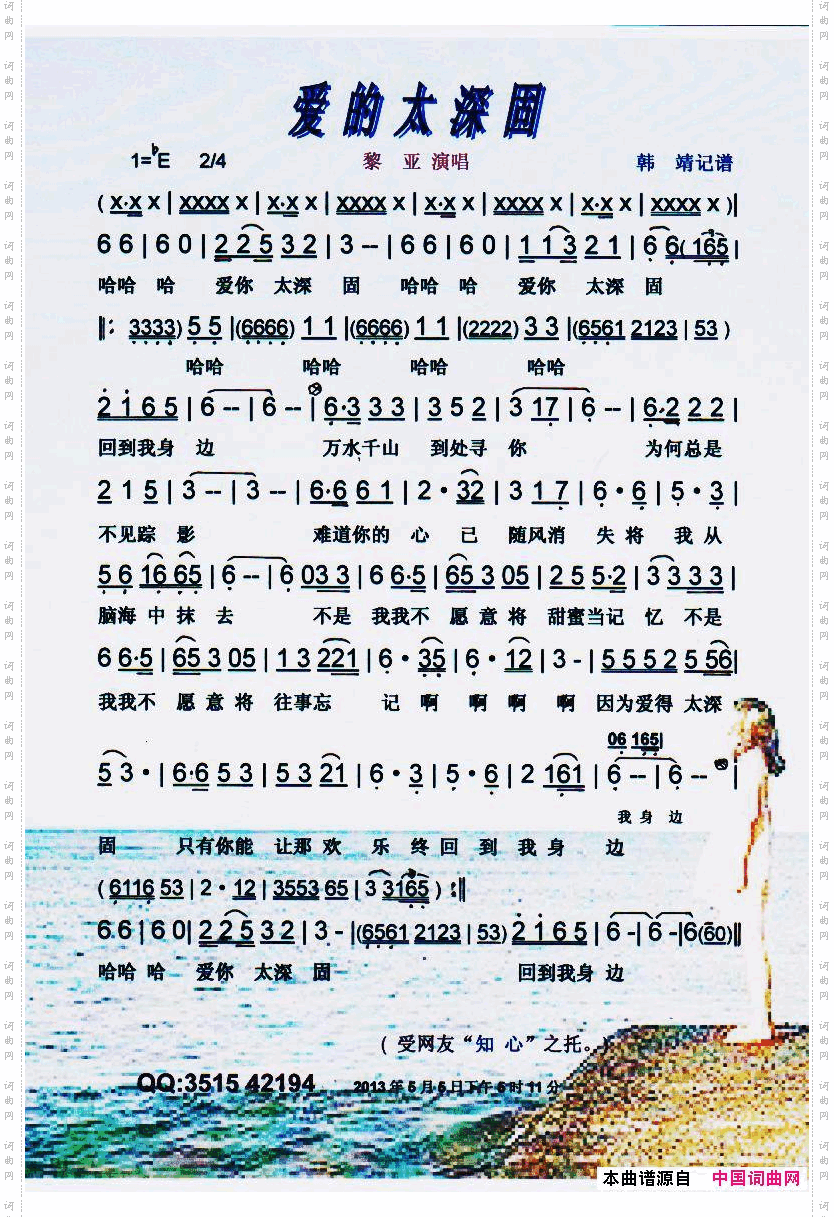 爱的太深固
1=♭E 2/4 黎 亚 演唱 韩 靖记谱
( X·X X | XXXX X | X·X X | XXXX X | X·X X | XXXX X | X·X X | XXXX X )||
6 6 | 6 0 | 2 2 5 3 2 | 3 -- | 6 6 | 6 0 | 1 1 3 2 1 | 6 6 ( 1 6 5 |
哈哈 哈 爱你 太深 固 哈哈 哈 爱你 太深 固
||: 3333) 5 5 |(6666) 1 1 |(6666) 1 1 |(2222) 3 3 |(6561 2123 | 53 )
哈哈 哈哈 哈哈 哈哈
2 1 6 5 | 6 -- | 6 -- | 6·3 3 3 | 3 5 2 | 3 17 | 6 -- | 6·2 2 2 |
回到我身 边 万水千山 到处寻 你 为何总是
2 1 5 | 3 -- | 3 -- | 6·6 6 1 | 2 · 32 | 3 1 7 | 6 · 6 | 5 · 3 |
不见踪 影 难道你的 心 已 随风消 失 将 我 从
5 6 16 65 | 6 -- | 6 03 3 | 6 6·5 | 65 3 05 | 2 5 5·2 | 3 3 3 3 |
脑海 中 抹 去 不是 我我不 愿 意 将 甜蜜当记 忆 不是
6 6·5 | 65 3 05 | 1 3 221 | 6 · 35 | 6 · 12 | 3 - | 5 5 5 2 5 56|
我我不 愿 意 将 往事忘 记 啊 啊 啊 啊 因为爱得 太深
06 165|
5 3 · | 6·6 5 3 | 5 3 21 | 6 · 3 | 5 · 6 | 2 161 | 6 -- | 6 -- |
我 身 边
固 只有你能 让那 欢 乐 终 回 到 我 身 边
( 6116 53 | 2 · 12 | 3553 65 | 3 3165 ) :||
6 6 | 6 0| 2 2 5 3 2 | 3 - |(6561 2123 | 53) 2 1 6 5 | 6 -| 6 -|6(60)||
哈哈 哈 爱你 太深 固 回到我身 边
( 受网友“知 心”之托。)
QQ:3515 42194 2013年5月5日下午6时11分
本曲谱源自 中国词曲网